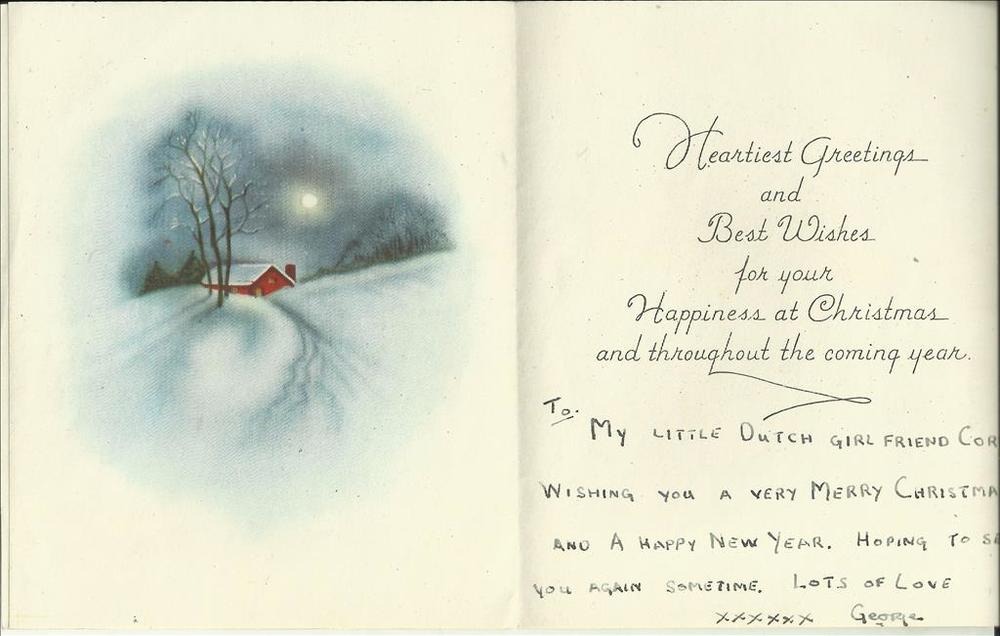 Heartiest Greetings
and
Best Wishes
for your
Happiness at Christmas
and throughout the coming year.
To.
My little Dutch girl friend Cor
Wishing you a very Merry Christma
and A happy New Year. Hoping to s
you again sometime. Lots of Love
xxxxxx George